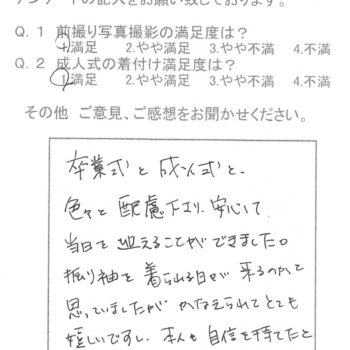 アンケートの記入をお願い致しております。
Q.1 前撮り写真撮影の満足度は?
1.満足 2.やや満足 3.やや不満 4.不満
Q.2 成人式の着付け満足度は?
1.満足 2.やや満足 3.やや不満 4.不満
その他 ご意見、ご感想をお聞かせください。
卒業式と成人式と、
色々と配慮下さり、安心して
当日を迎えることができました。
振り袖を着られる日が来るのかと
思っていましたが かなえられてとても
嬉しいですし、本人も自信を持てたと